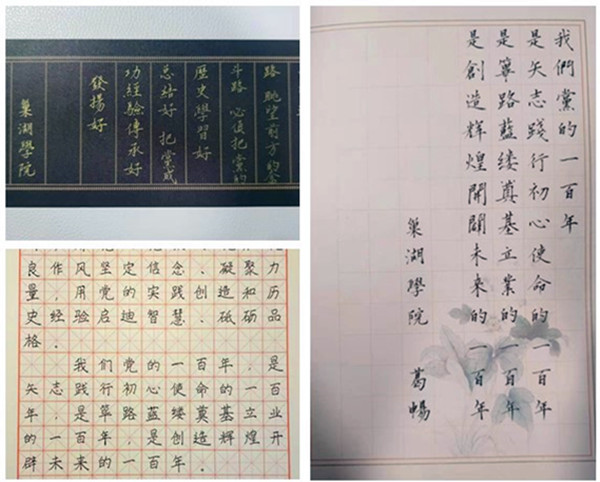 路 眺望前方的奮
斗路 必須把黨的
歷史學習好
总結好 把黨成
功經驗傳承好
發揚好
巢湖學院
良作风坚定信念、凝聚力
量,用党的实践创造和历
史经验启迪智慧、砥砺品
格.
我们党的一百年,是
矢志践行初心使命的一百
年,是筚路蓝缕奠基立业
的一百年,是创造辉煌开
辟未来的一百年.
我們黨的一百年
是矢志踐行初心使命的一百年
是篳路藍縷奠基立業的一百年
是創造輝煌開闢未來的一百年
巢湖學院 葛暢